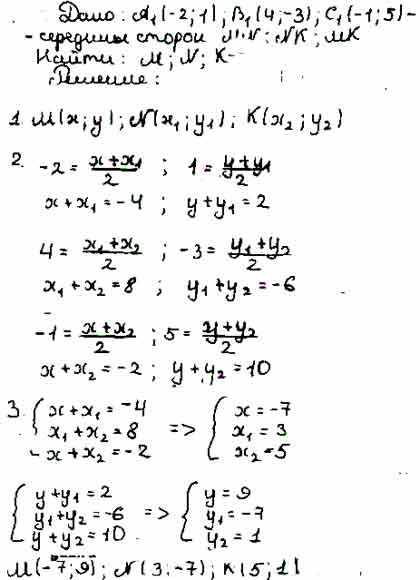 Дано: A₁(-2;1); B₁(4;-3); C₁(-1;5)-
-середины сторон MN; NK; MK
Найти: M; N; K
Решение:
1. M(x;y); N(x₁;y₁); K(x₂;y₂)
2. -2 = (x+x₁)/2 ; 1 = (y+y₁)/2
x+x₁=-4 ; y+y₁=2
4 = (x₁+x₂)/2 ; -3 = (y₁+y₂)/2
x₁+x₂=8 ; y₁+y₂=-6
-1 = (x+x₂)/2 ; 5 = (y+y₂)/2
x+x₂=-2 ; y+y₂=10
3. { x+x₁=-4 { x=-7
x₁+x₂=8 => x₁=3
x+x₂=-2 x₂=5
{ y+y₁=2 { y=9
y₁+y₂=-6 => y₁=-7
y+y₂=10 y₂=1
M(-7;9); N(3;-7); K(5;1)